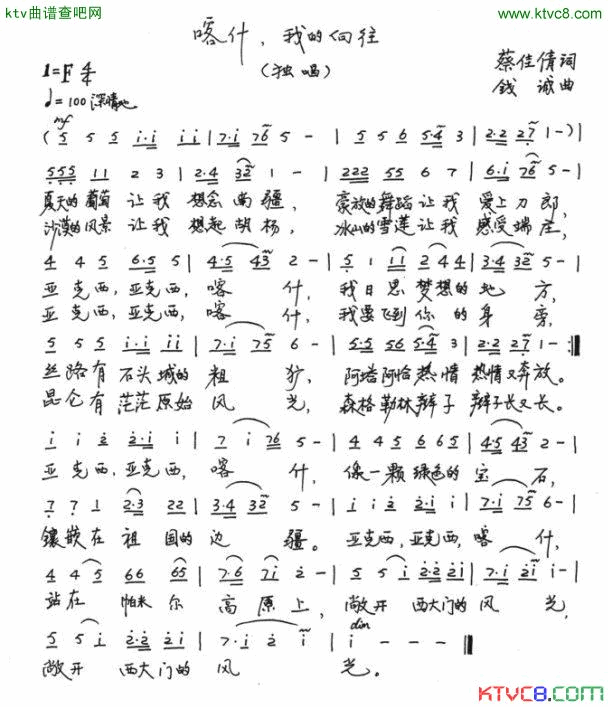 ktv曲谱查吧网
www.ktvc8.com
喀什，我的向往
（独唱）
1=F 4/4
蔡佳倩词
钱诚曲
♩=100 深情地
mf
(5 5 5 i·i i i | 7·i 76 5 - | 5 5 6 5·4 3 | 2·2 27 1 -) |
555 11 2 3 | 2·4 32 1 - | 222 55 6 7 | 6·i 76 5 - |
夏天的葡萄 让我 想念南疆， 豪放的舞蹈让我 爱上刀郎，
沙漠的风景 让我 想起胡杨， 冰山的雪莲让我 感受端庄，
4 4 5 6·5 5 | 4·5 43 2 - | 5 1 11 2 44 | 3·4 32 5 - |
亚克西，亚克西， 喀什， 我日思梦想的地方，
亚克西，亚克西， 喀什， 我要飞到你的身旁，
5 5 5 i·i i i | 7·i 75 6 - | 55 56 5·4 3 | 2·2 27 1 - :||
丝路有 石头城的 粗犷， 阿塔阿恰热情 热情又奔放。
昆仑有 茫茫原始 风光， 森格勒林辫子 辫子长又长。
i i 2 2·i i | 7 i 76 5 - | 4 4 5 6 6 5 | 4·5 43 2 - |
亚克西，亚克西， 喀什， 像一颗绿色的宝石，
7 7 1 2·3 22 | 3·4 32 5 - | i i 2 2·i i | 7·i 75 6 - |
镶嵌在 祖国的边疆。 亚克西，亚克西，喀什，
4 4 5 66 65 | 7·6 7i 2 - | 5 5 i 2·2 2i | 7·i 2i i - |
站在 帕米尔 高原上， 敞开 西大门的风光，
dim
5 5 i 2·2 2i | 7·i 2 i | i - - - ||
敞开 西大门的 风光。
KTVC8.com